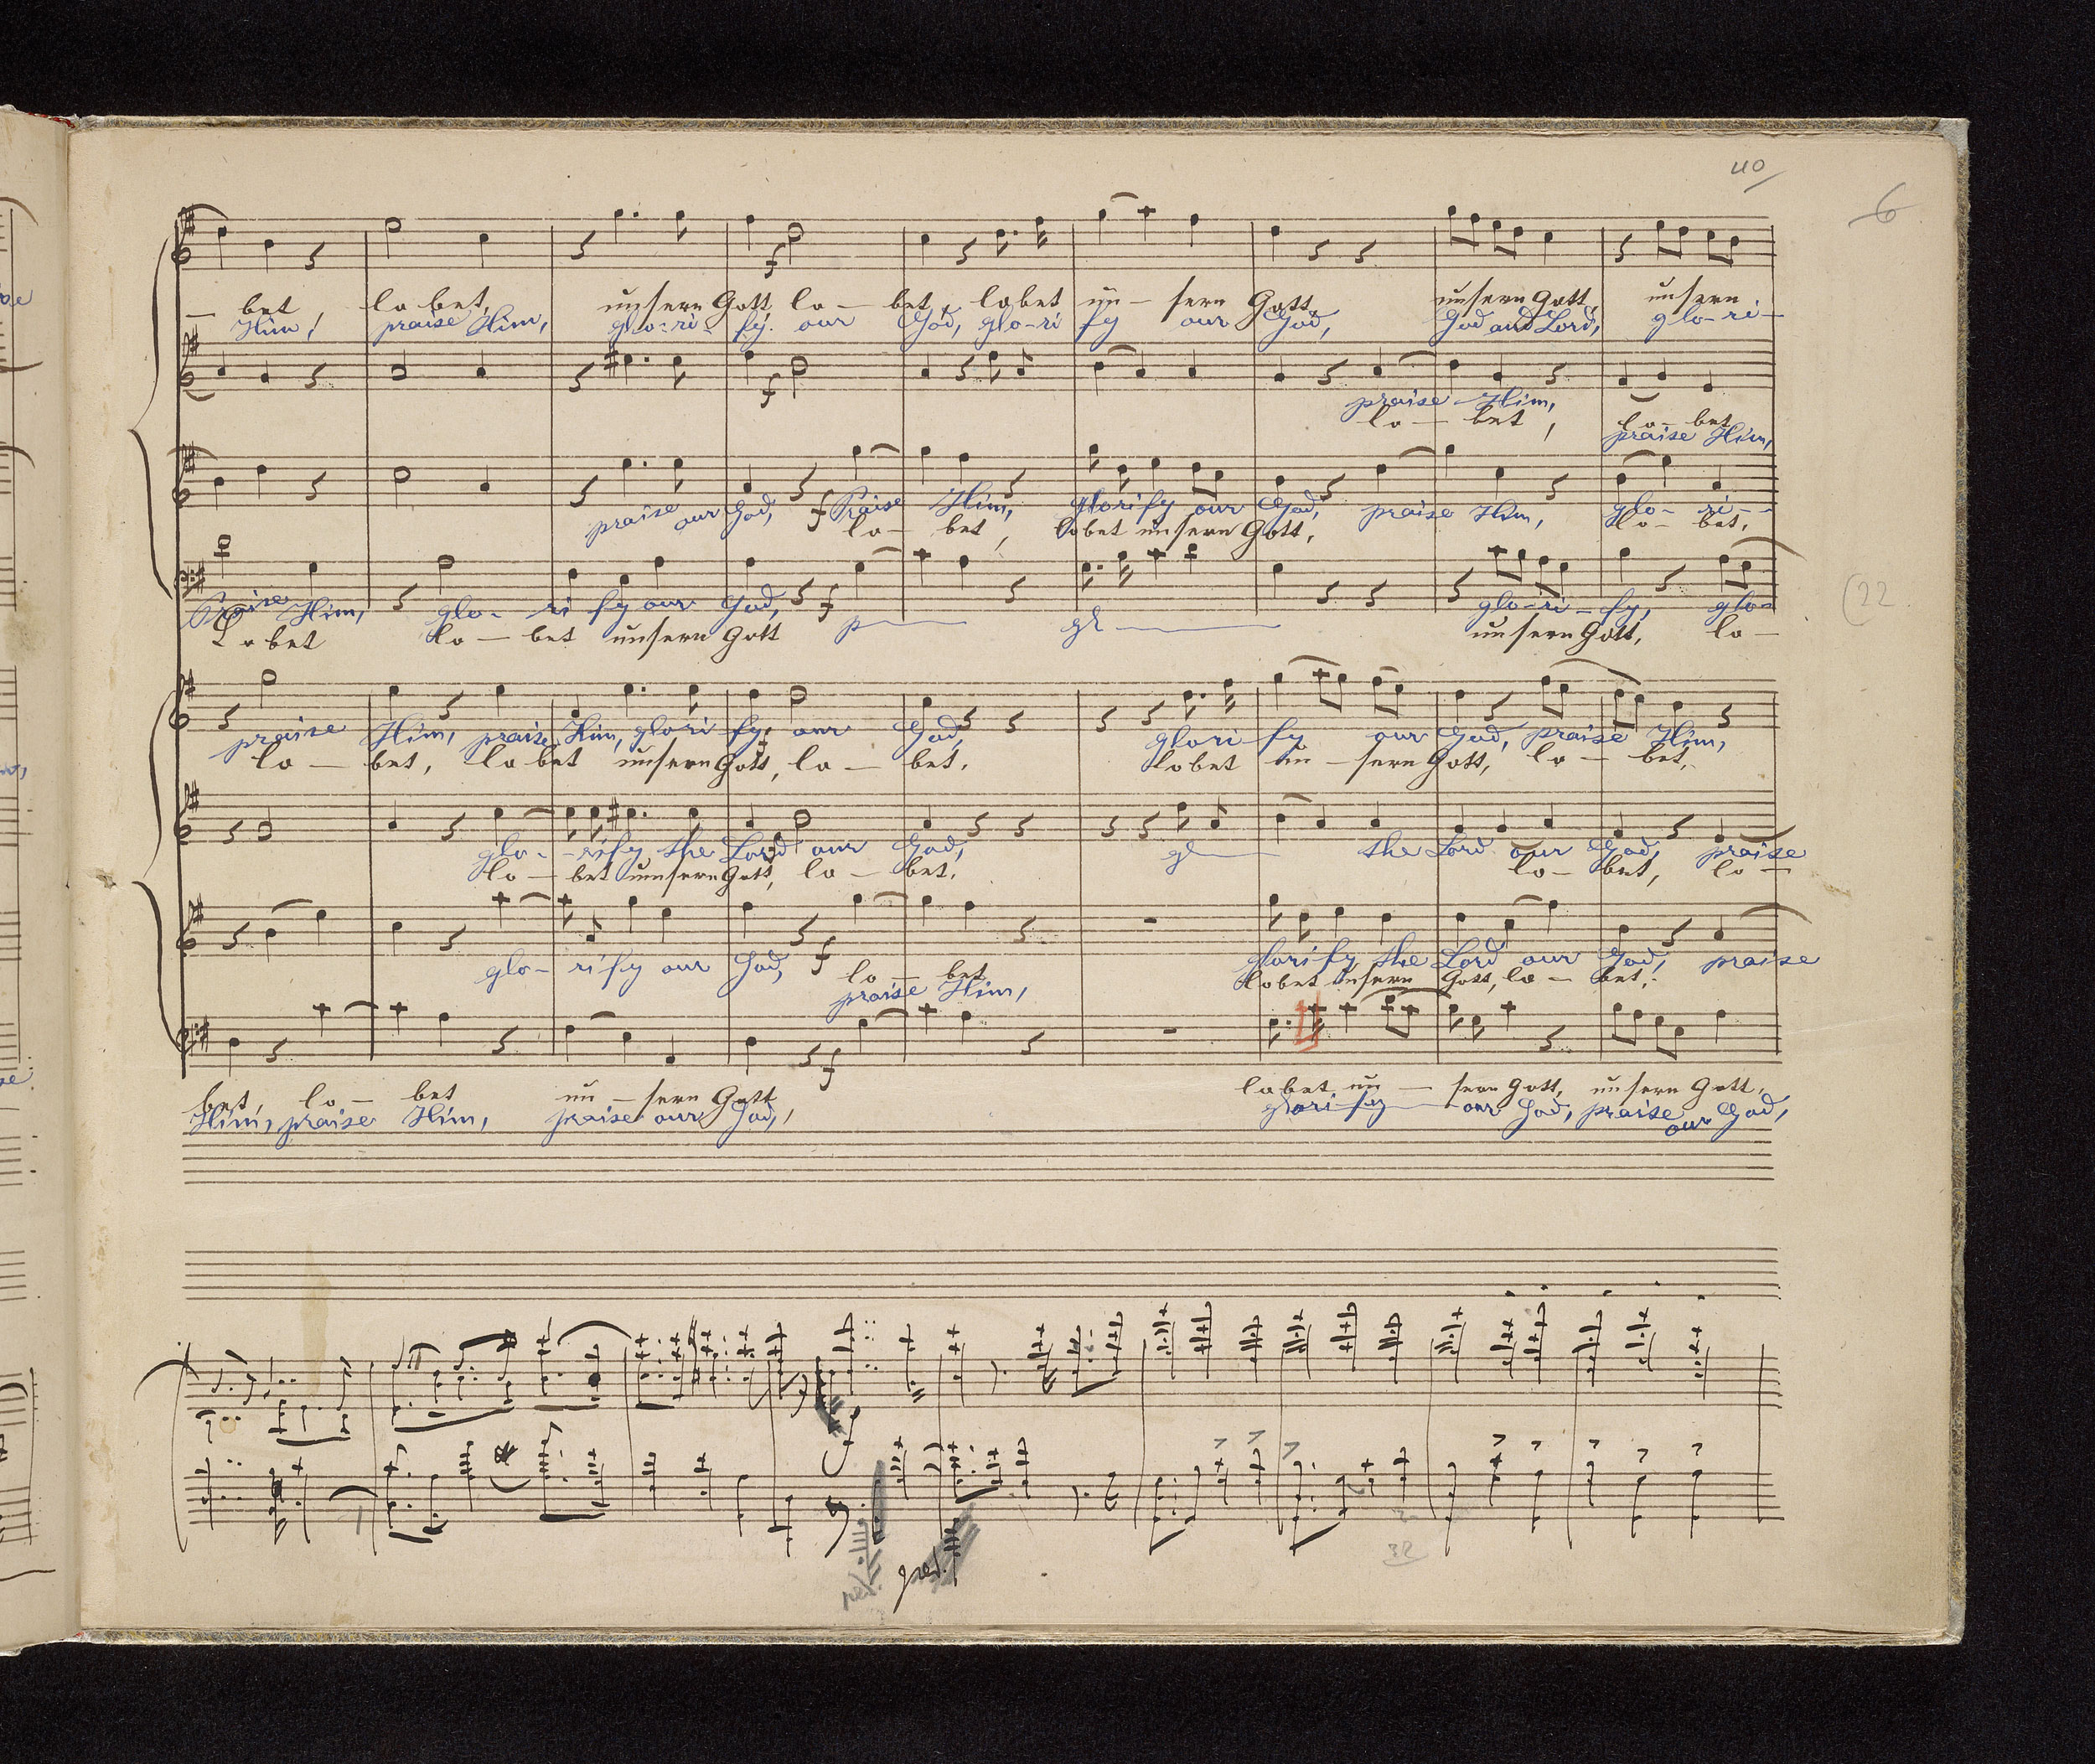 40
6
— bet, lo bet, unsern Gott, lo — bet, lobet un — sern Gott, unsern Gott, unsern
Him, praise Him, glo-ri- fy our God, glo-ri fy our God, God and Lord, glo-ri-
f
f
praise Him, praise Him,
lo — bet, lo — bet
praise our God, f Praise Him, glorify our God, praise Him, glo- ri-
lo — bet, lobet unsern Gott, lo — bet.
Praise Him, glo- ri fy our God, f p gl glo-ri-fy, glo-
Lobet lo — bet unsern Gott unsern Gott, lo —
(22
praise Him, praise Him, glori fy, our God, glori fy our God, praise Him,
lo — bet, lobet unsern Gott, lo — bet. lobet un — sern Gott, lo — bet.
glo- rify the Lord our God, gl the Lord our God, praise
lo — bet unsern Gott, lo — bet. lo — bet, lo —
glo- rify our God, f glorify the Lord our God, praise
lo — bet lobet unsern Gott, lo — bet.
praise Him,
f
bet, lo — bet un — sern Gott lobet un — sern Gott, unsern Gott,
Him, praise Him, praise our God, glorify our God, praise our God,
f
32
ped. ped.